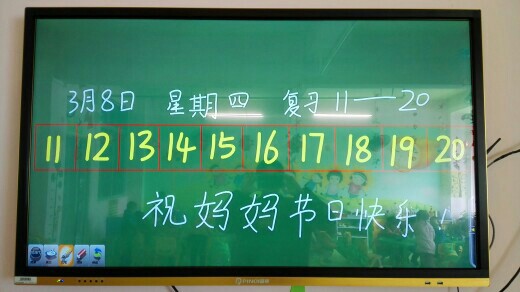 3月8日 星期四 复习11—20
11 12 13 14 15 16 17 18 19 20
祝妈妈节日快乐!